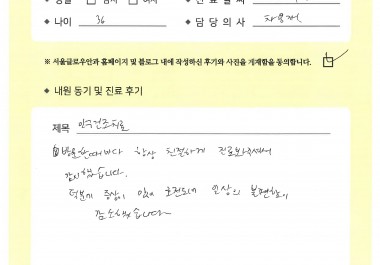 ◆ 나이 36 ◆ 담당의사
※ 서울글로우안과 홈페이지 및 블로그 내에 작성하신 후기와 사진을 게재함을 동의합니다.
◆ 내원 동기 및 진료 후기
제목 안구건조치료
방문할때마다 항상 친절하게 진료봐주셔서
감사했습니다.
덕분에 증상이 많이 호전되어 일상의 불편함이
감소했습니다